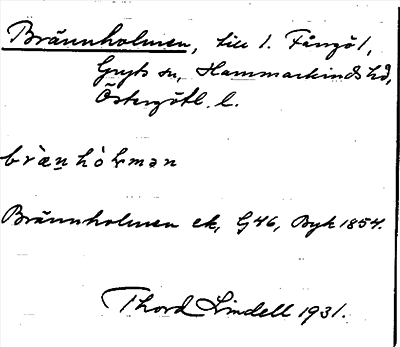 Brännholmen, till l. Fångö l,
Gryts sn, Hammarkinds hd,
Östergötl. l.
bræ̀n̥hòl̥mən
Brännholmen ek, G46, Byk 1854.
Thord Lindell 1931.